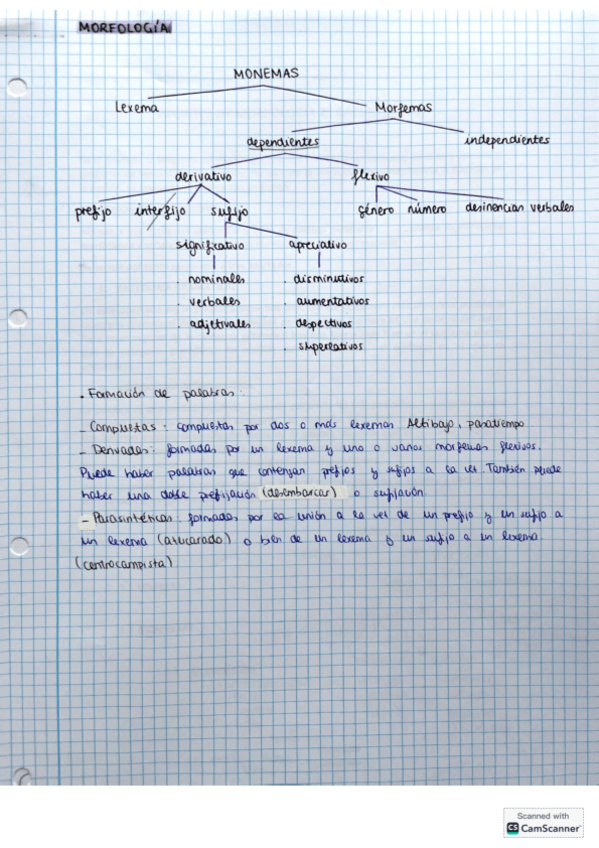 MORFOLOGÍA
MONEMAS
Lexema Morfemas
dependientes independientes
derivativo flexivo
prefijo interfijo sufijo género número desinencias verbales
significativo apreciativo
. nominales . disminutivos
. verbales . aumentativos
. adjetivales . despectivos
. superlativos
. Formación de palabras:
- Compuestas: compuestas por dos o más lexemas Altibajo, pasatiempo
- Derivadas: formadas por un lexema y uno o varios morfemas flexivos.
Puede haber palabras que contengan prefijos y sufijos a la vez. También puede
haber una doble prefijación (desembarcar) o sufijación
- Parasintéticas: formadas por la unión a la vez de un prefijo y un sufijo a
un lexema (azucarado) o bien de un lexema y un sufijo a un lexema.
(centrocampista)
Scanned with
CS CamScanner